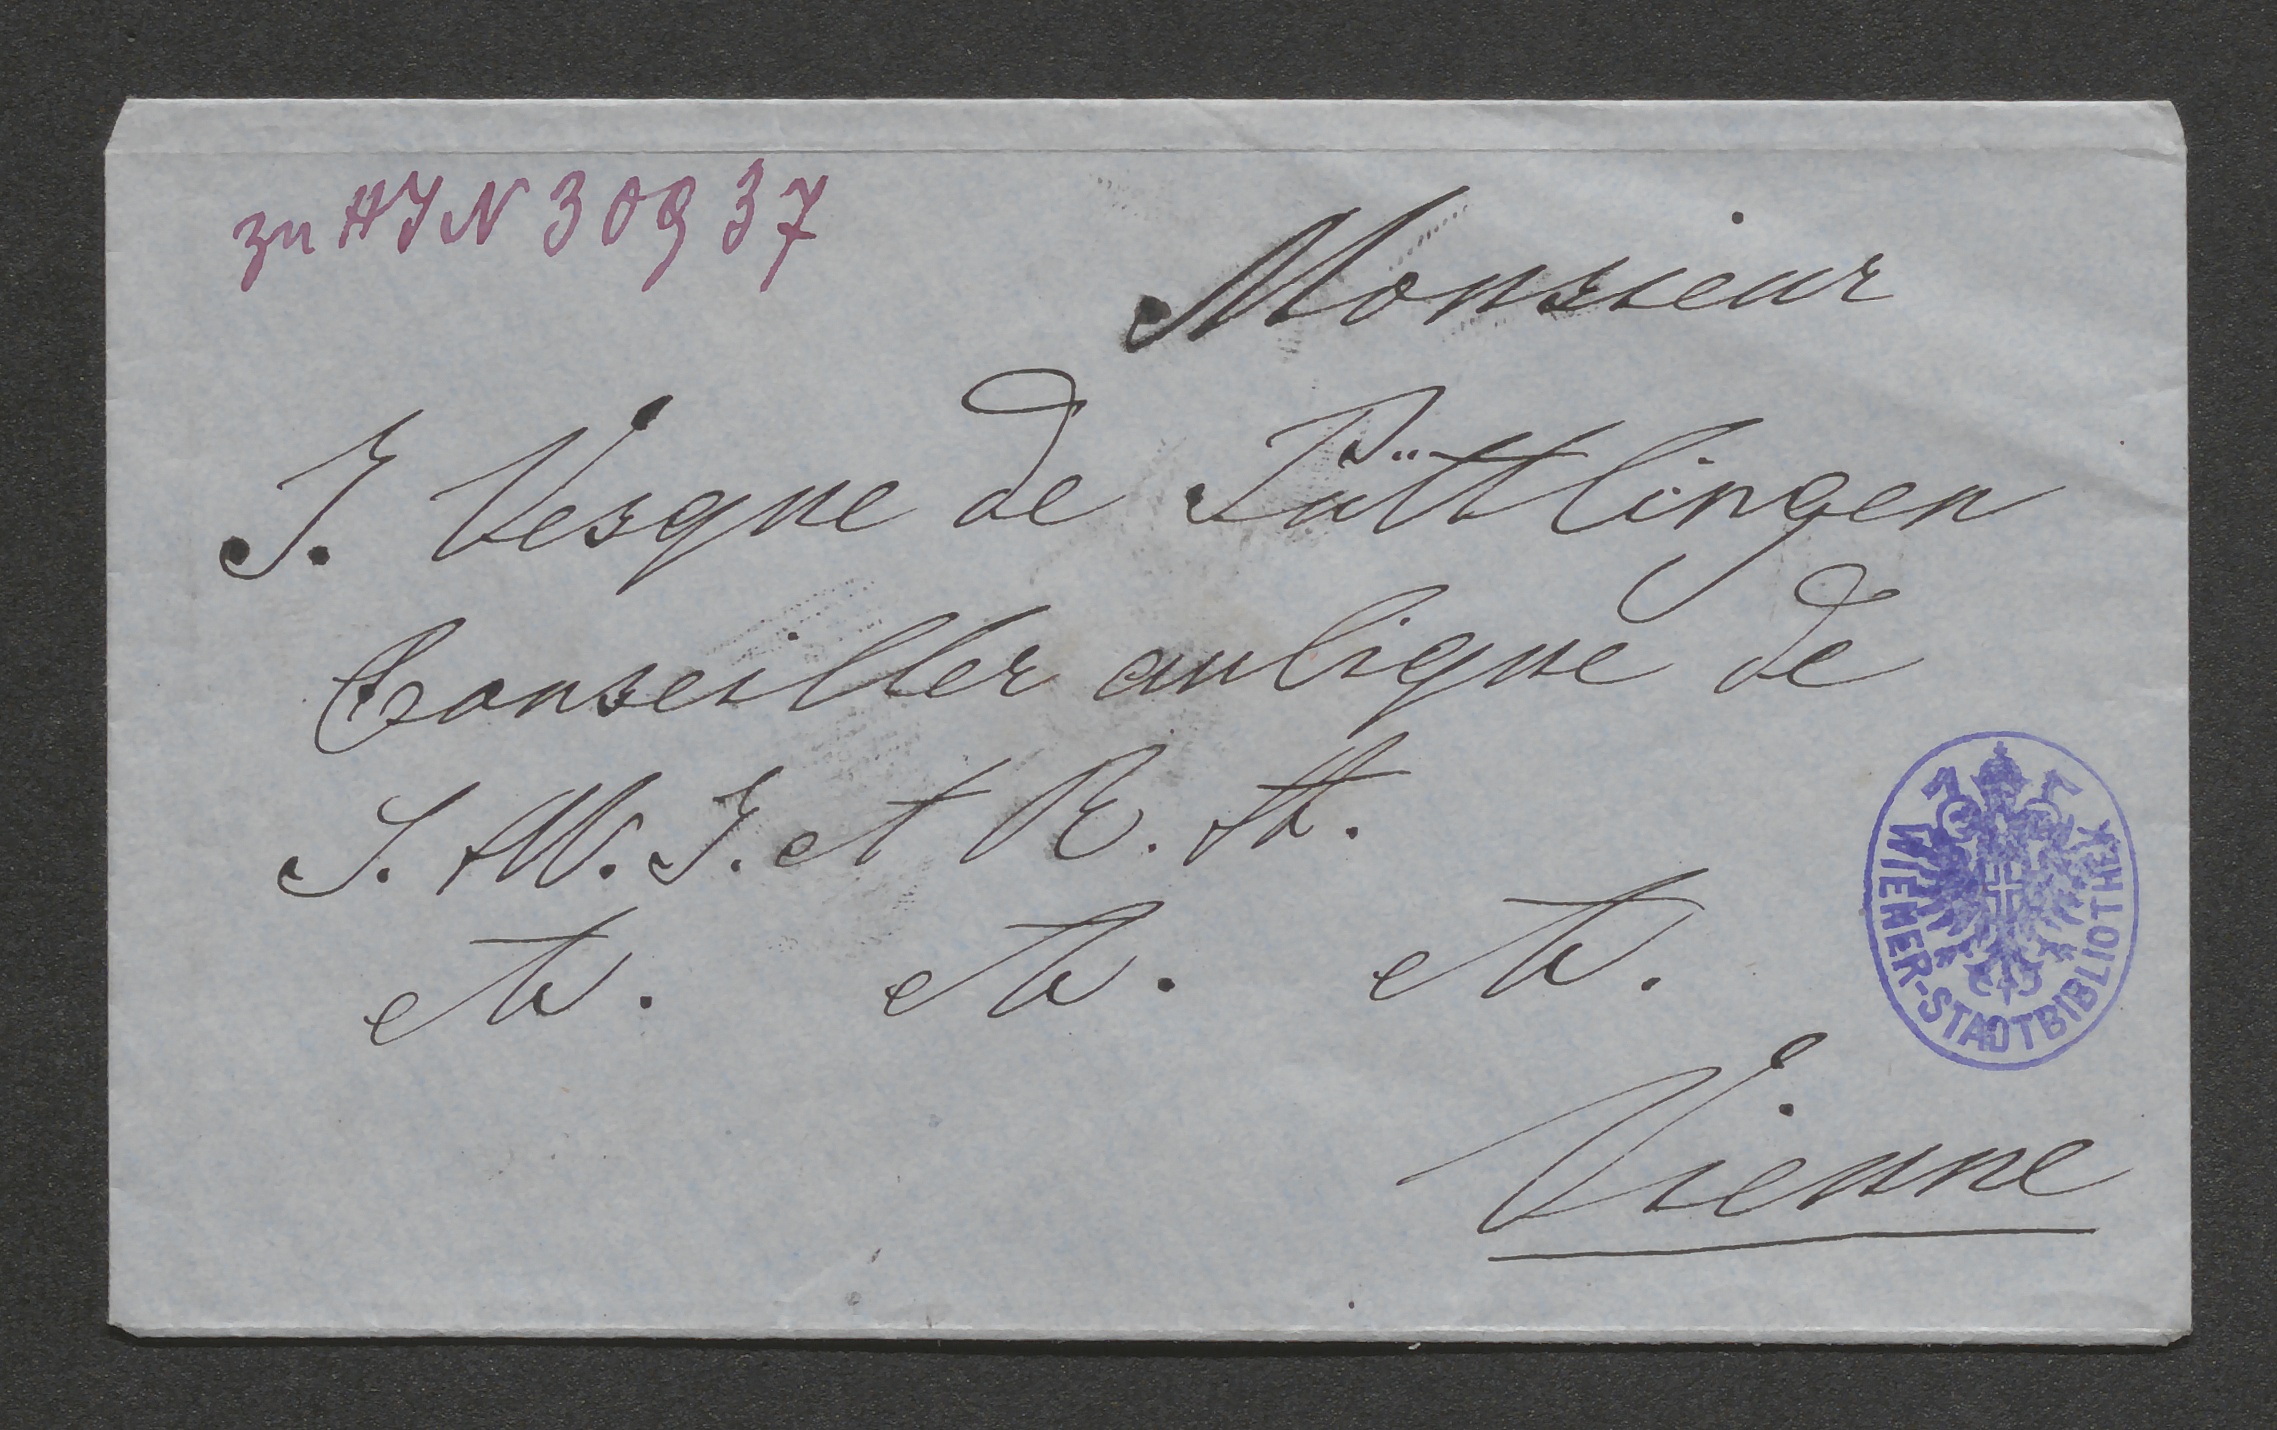 zu HIN 30937
Monsieur
J. Vesque de Püttlingen
Conseiller aulique de
S. M. I. et R. A.
etc. etc. etc.
WIENER-STADTBIBLIOTHEK
Vienne